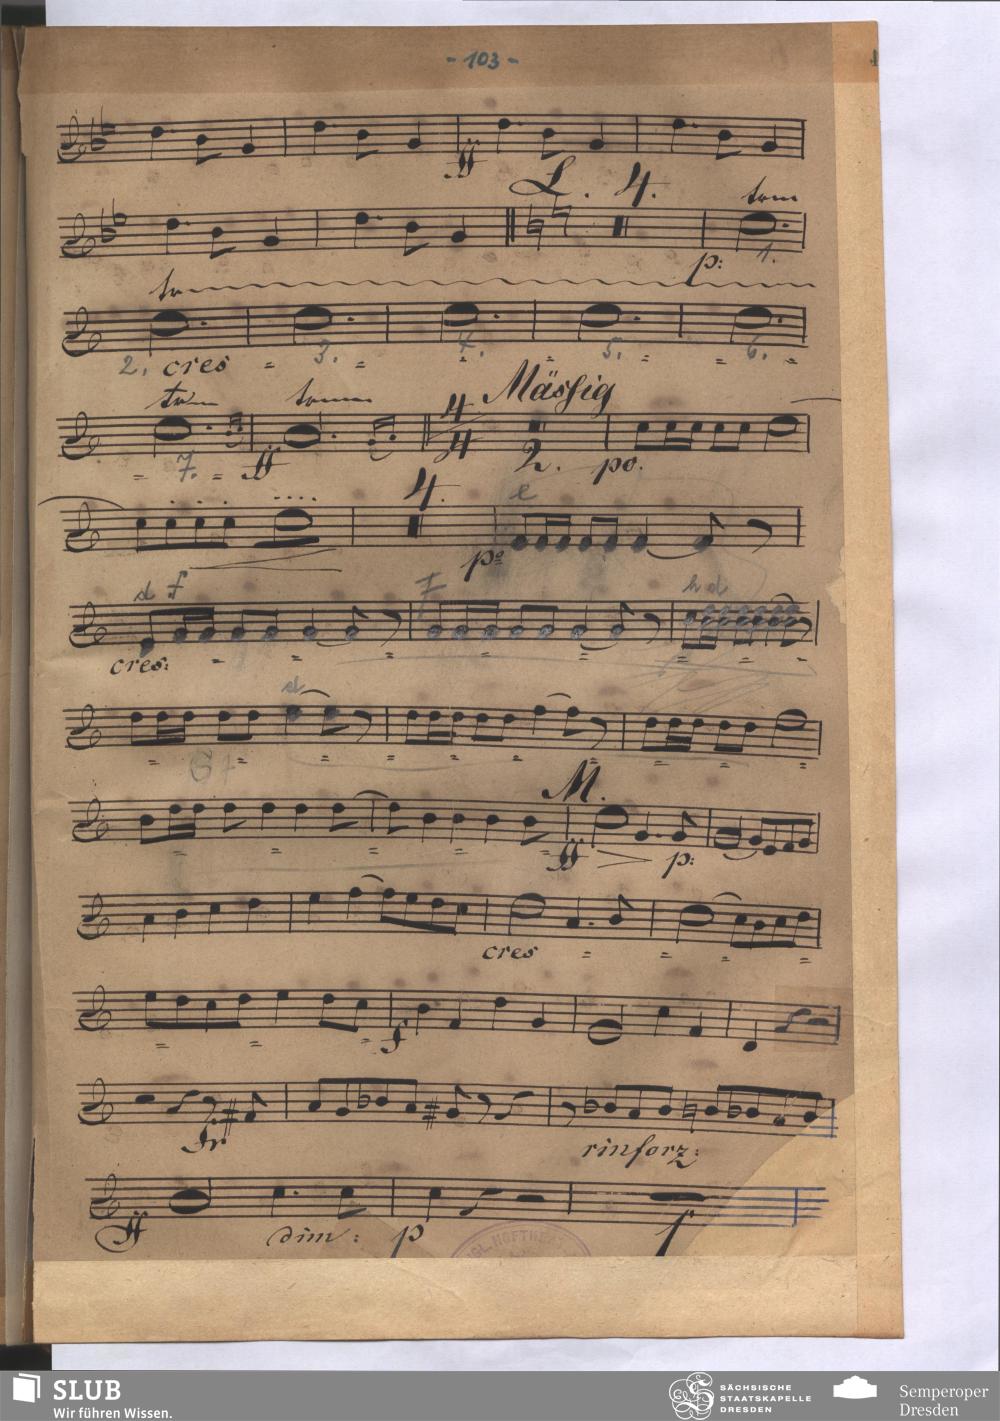 - 103 -
ff
L. 4. trm
p: 1.
tr
2. cres = 3. = 4. = 5. = = 6. =
trm trm 4/4 Mässig
= 7. = ff 2. po.
4. e
po
d f F h d
cres: = = = = = = = =
d
= = = = = = = =
G F
M.
= = = = = ff p:
cres = = = =
= = = f
fr rinforz:
ff dim: p f
KGL. HOFTHEA
SLUB
Wir führen Wissen.
SÄCHSISCHE
STAATSKAPELLE
DRESDEN
Semperoper
Dresden